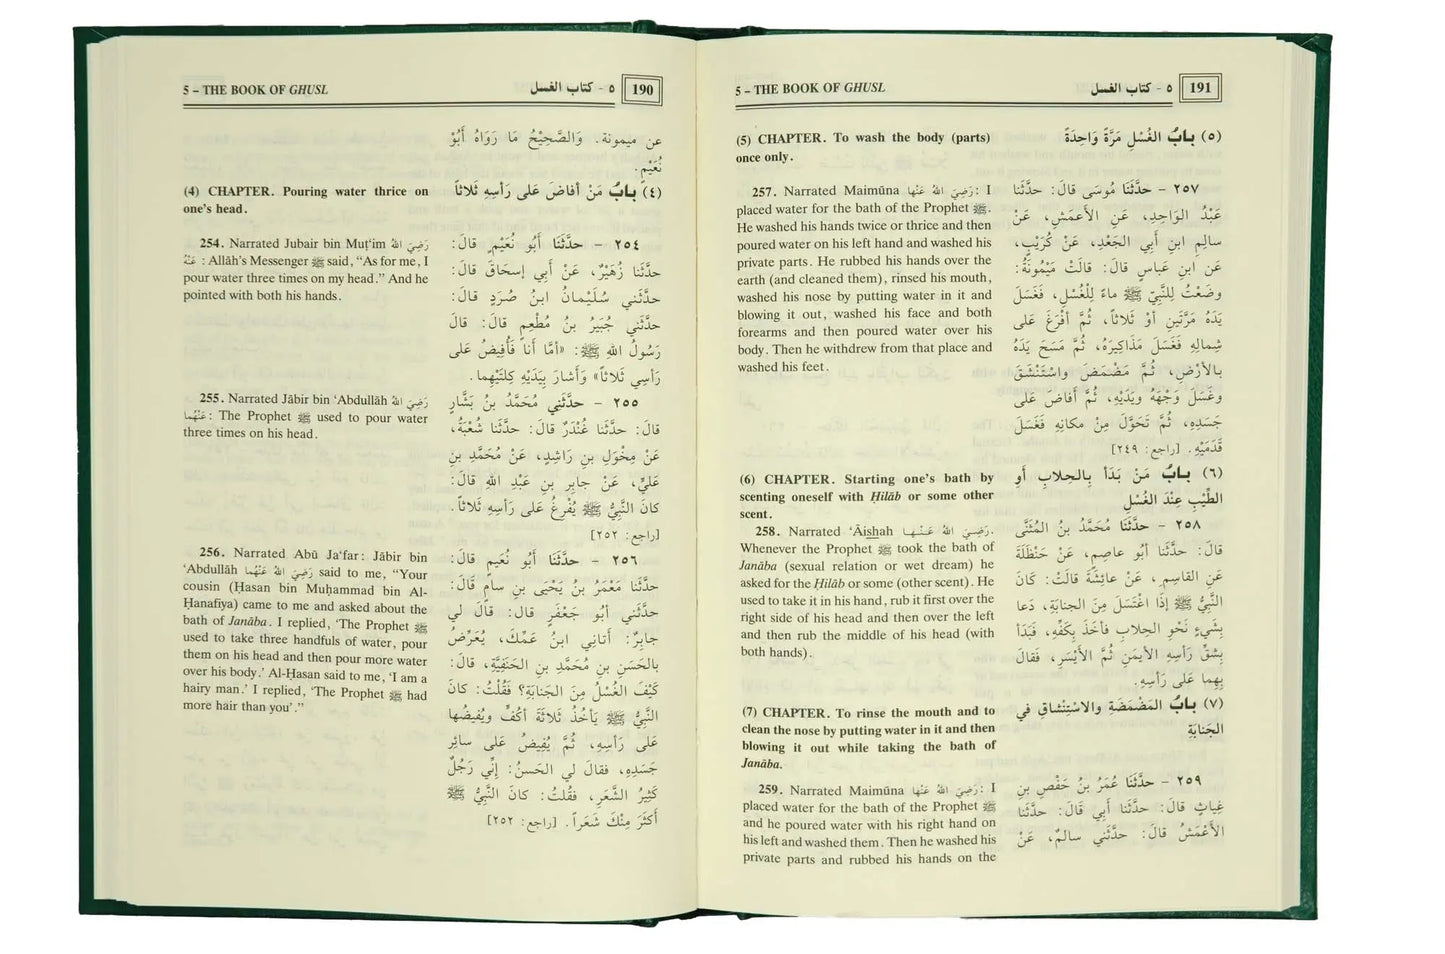 5 – THE BOOK OF GHUSL
٥ - كتاب الغسل
190
(4) CHAPTER. Pouring water thrice on
one's head.
254. Narrated Jubair bin Muṭ'im رَضِيَ اللهُ
عَنْهُ : Allāh's Messenger ﷺ said, "As for me, I
pour water three times on my head." And he
pointed with both his hands.
255. Narrated Jābir bin 'Abdullāh رَضِيَ اللهُ
عَنْهُمَا: The Prophet ﷺ used to pour water
three times on his head.
256. Narrated Abū Ja'far: Jābir bin
'Abdullāh رَضِيَ اللهُ عَنْهُمَا said to me, "Your
cousin (Ḥasan bin Muḥammad bin Al-
Ḥanafiya) came to me and asked about the
bath of Janāba. I replied, 'The Prophet ﷺ
used to take three handfuls of water, pour
them on his head and then pour more water
over his body.' Al-Ḥasan said to me, 'I am a
hairy man.' I replied, 'The Prophet ﷺ had
more hair than you'."
عن ميمونة. وَالصَّحِيْحُ مَا رَوَاهُ أَبُوْ
نُعَيْمٍ.
(٤) بابُ مَنْ أفاضَ عَلى رَأسِهِ ثَلاثاً
٢٥٤ - حدَّثَنَا أَبُو نُعَيْمٍ قالَ:
حدَّثَنا زُهَيْرٌ، عَنْ أَبي إسحَاقَ قالَ:
حدَّثَني سُلَيْمانُ ابنُ صُرَدٍ قالَ:
حدَّثَني جُبَيْرُ بنُ مُطْعِمٍ قالَ: قالَ
رَسُولُ اللهِ ﷺ: «أمَّا أنا فَأُفِيضُ عَلى
رَأسِي ثَلاثاً» وَأشارَ بِيَدَيْهِ كِلتَيْهِما.
٢٥٥ - حدَّثَنِي مُحَمَّدُ بنُ بَشَّارٍ
قالَ: حدَّثَنا غُنْدَرٌ قالَ: حدَّثَنا شُعْبَةُ،
عَنْ مِخْوَلِ بنِ رَاشِدٍ، عَنْ مُحَمَّدِ بنِ
عَليٍّ، عَنْ جابِرِ بنِ عَبْدِ اللهِ قالَ:
كانَ النَّبِيُّ ﷺ يُفْرِغُ عَلى رَأسِهِ ثَلاثاً.
[راجع: ٢٥٢]
٢٥٦ - حدَّثَنَا أَبُو نُعَيم قالَ:
حدَّثَنا مَعْمَرُ بنُ يَحْيَى بنِ سامٍ قالَ:
حدَّثَني أبُو جَعْفَرٍ قال: قالَ لي
جابِرٌ: أتاني ابنُ عَمِّكَ، يُعَرِّضُ
بالحَسَنِ بنِ مُحَمَّدِ بنِ الحَنَفِيَّةِ، قالَ:
كَيْفَ الغُسْلُ مِنَ الجَنابَةِ؟ فَقُلْتُ: كانَ
النَّبيُّ ﷺ يَأخُذُ ثَلاثَةَ أكُفٍّ ويُفيضُها
عَلى رَأسِهِ، ثُمَّ يُفِيضُ عَلى سائِر
جَسَدِهِ، فَقالَ لي الحَسَنُ: إنّي رَجُلٌ
كَثِيْرُ الشَّعَرِ، فَقُلْتُ: كانَ النَّبِيُّ ﷺ
أكثَرَ مِنْكَ شَعَراً. [راجع: ٢٥٢]
5 – THE BOOK OF GHUSL
٥ - كتاب الغسل
191
(5) CHAPTER. To wash the body (parts)
once only.
257. Narrated Maimūna رَضِيَ اللهُ عَنْها: I
placed water for the bath of the Prophet ﷺ.
He washed his hands twice or thrice and then
poured water on his left hand and washed his
private parts. He rubbed his hands over the
earth (and cleaned them), rinsed his mouth,
washed his nose by putting water in it and
blowing it out, washed his face and both
forearms and then poured water over his
body. Then he withdrew from that place and
washed his feet.
(6) CHAPTER. Starting one's bath by
scenting oneself with Ḥilāb or some other
scent.
258. Narrated 'Āishah رَضِيَ اللهُ عَنْها.
Whenever the Prophet ﷺ took the bath of
Janāba (sexual relation or wet dream) he
asked for the Ḥilāb or some (other scent). He
used to take it in his hand, rub it first over the
right side of his head and then over the left
and then rub the middle of his head (with
both hands).
(7) CHAPTER. To rinse the mouth and to
clean the nose by putting water in it and then
blowing it out while taking the bath of
Janāba.
259. Narrated Maimūna رَضِيَ اللهُ عَنْها: I
placed water for the bath of the Prophet ﷺ
and he poured water with his right hand on
his left and washed them. Then he washed his
private parts and rubbed his hands on the
(٥) بابُ الغُسْلِ مَرَّةً وَاحِدَةً
٢٥٧ - حدَّثَنَا مُوسَى قالَ: حدَّثَنا
عَبْدُ الوَاحِدِ، عَنِ الأَعمَشِ، عَنْ
سالِمِ ابنِ أبي الجَعْدِ، عَنْ كُرَيْبٍ،
عَنِ ابنِ عَباسٍ قالَ: قالَتْ مَيْمُونَةُ:
وضَعْتُ لِلنَّبيِّ ﷺ ماءً لِلْغُسْلِ، فَغَسَلَ
يَدَهُ مَرَّتَينِ أوْ ثَلاثاً، ثُمَّ أفْرَغَ عَلى
شِمالِهِ فَغَسَلَ مَذَاكِيرَهُ، ثُمَّ مَسَحَ يَدَهُ
بالأرْضِ، ثُمَّ مَضْمَضَ واسْتَنْشَقَ
وغَسَلَ وَجْهَهُ ويَدَيْهِ، ثُمَّ أفاضَ عَلى
جَسَدِهِ، ثُمَّ تَحَوَّلَ مِنْ مَكانِهِ فَغَسَلَ
قَدَمَيْهِ. [راجع: ٢٤٩]
(٦) بابُ مَنْ بَدَأَ بِالحِلابِ أَوِ
الطِّيْبِ عِنْدَ الغُسْلِ
٢٥٨ - حدَّثَنَا مُحَمَّدُ بنُ المُثَنَّى
قالَ: حدَّثَنا أبُو عاصِمٍ، عَنْ حَنْظَلَةَ
عَنِ القاسِمِ، عَنْ عائِشَةَ قالَتْ: كانَ
النَّبيُّ ﷺ إذَا اغْتَسَلَ مِنَ الجَنابَةِ، دَعا
بِشَيْءٍ نَحْوَ الحِلابِ فأخَذَ بِكَفِّهِ، فَبَدَأَ
بِشِقِّ رَأسِهِ الأيمَنِ ثُمَّ الأيْسَرِ، فَقالَ
بِهِما عَلى رَأسِهِ.
(٧) بابُ المَضْمَضَةِ والاسْتِنْشاقِ في
الجَنابَةِ
٢٥٩ - حدَّثَنَا عُمَرُ بنُ حَفْصِ بنِ
غِياثٍ قالَ: حدَّثَنا أبي قَالَ: حدَّثَنا
الأَعْمَشُ قالَ: حدَّثَني سالمٌ، عَنْ